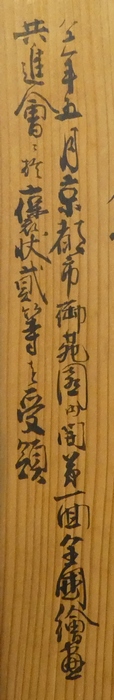 仝年五月京都市御苑園内開第一回全國繪畫
共進會ニ於褒狀貳等之受領